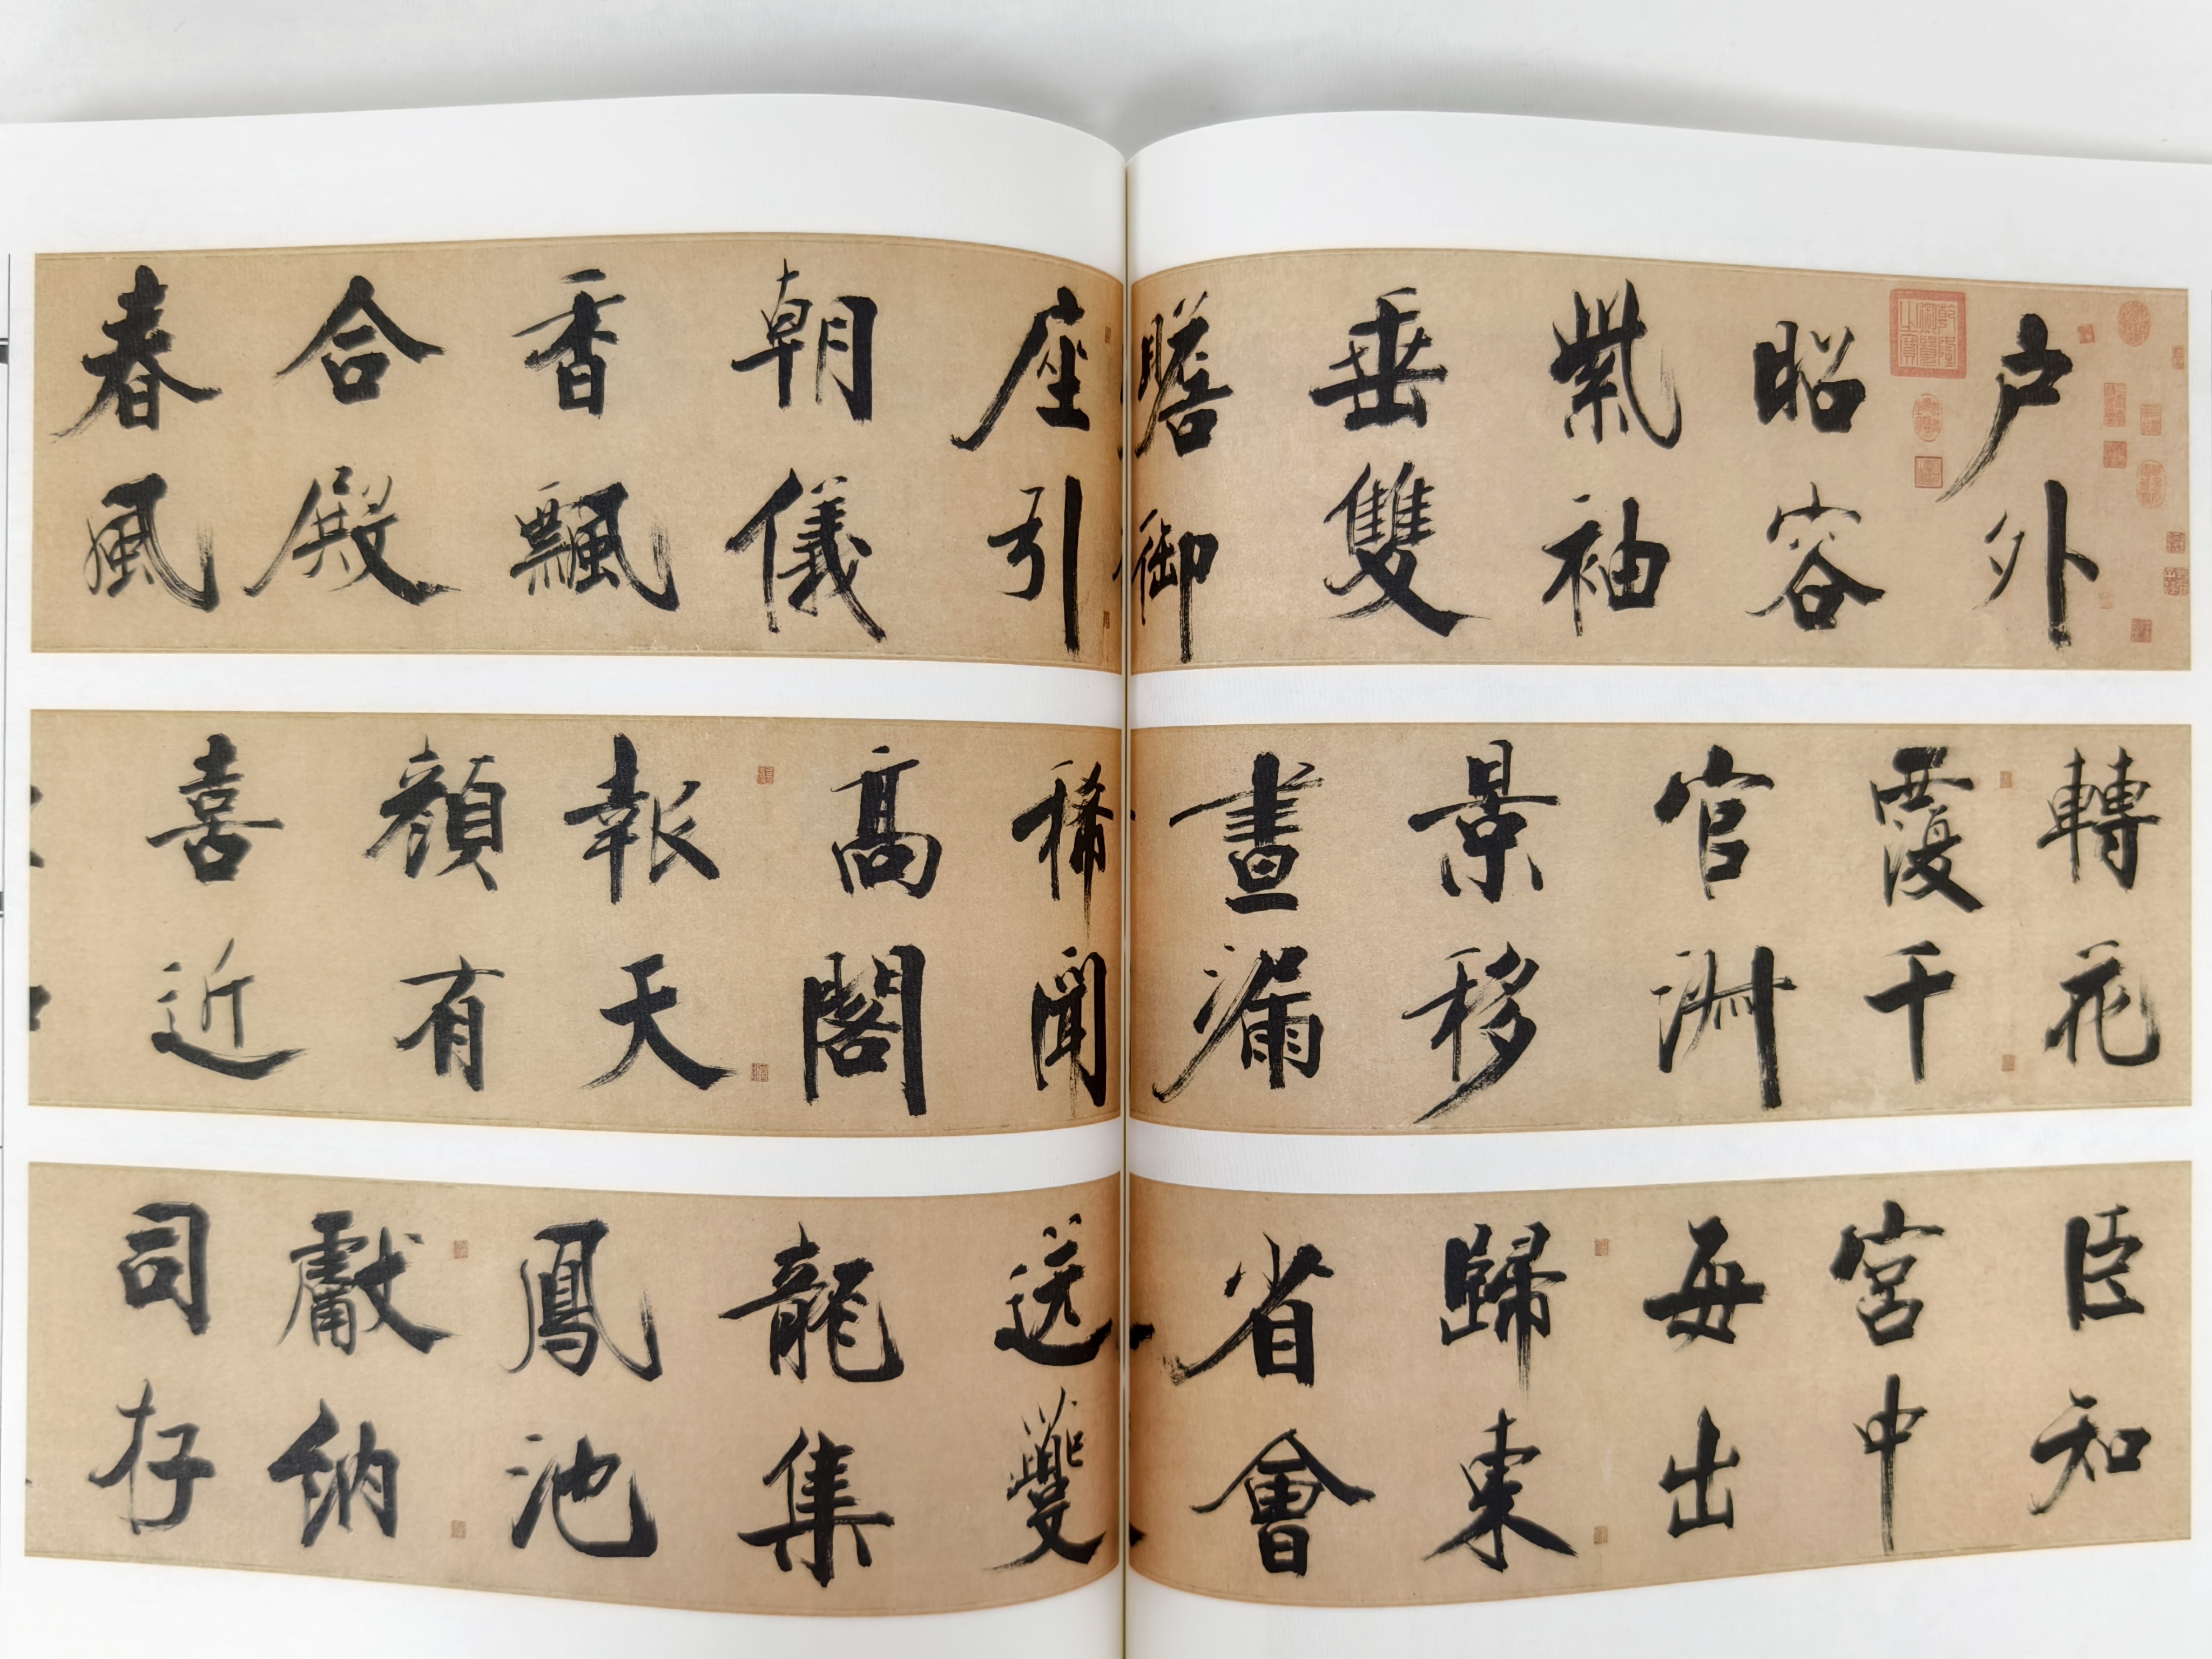 户外
昭容
紫袖
垂雙
瞻御
座引
朝儀
香飄
合殿
春風
轉花
覆千
官淑
景移
晝漏
稀聞
高閣
報天
顏有
喜近
臣知
宮中
每出
歸東
省會
送夔
龍集
鳳池
獻納
司存
乾隆御覽之寶